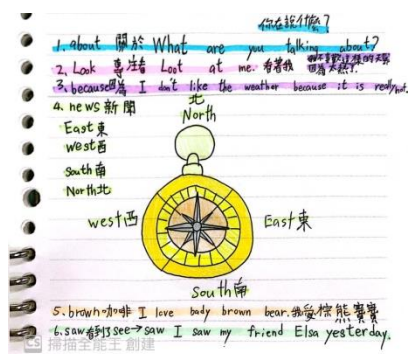 你在說什麼?
1. about 關於 What are you talking about?
2. Look 專注看 Loot at me. 看著我 我不喜歡這樣的天氣
因為太熱了.
3. because因為 I don't like the weather because it is really hot.
4. news 新聞
北
North
East 東
west 西
south 南
North 北
west 西
East 東
South 南
5. brown 咖啡 I love body brown bear. 我愛棕熊寶寶
6. saw 看到了 see→saw I saw my friend Elsa yesterday.
CS 掃描全能王 創建